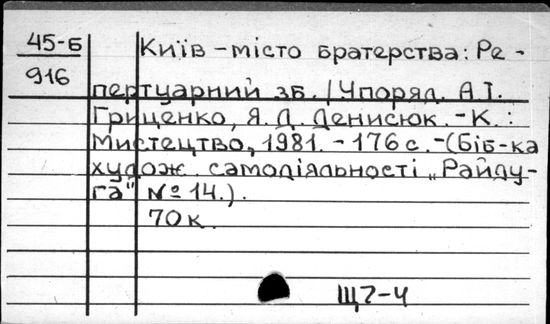 45-Б
916
Київ - місто братерства: Ре -
пертуарний зб. / Упоряд. А.І.
Гриценко, Я.Д. Денисюк. - К.:
Мистецтво, 1981. - 176 с. - (Біб-ка
худож. самодіяльності „Райду-
га" № 14.).
70 к.
Щ7-4